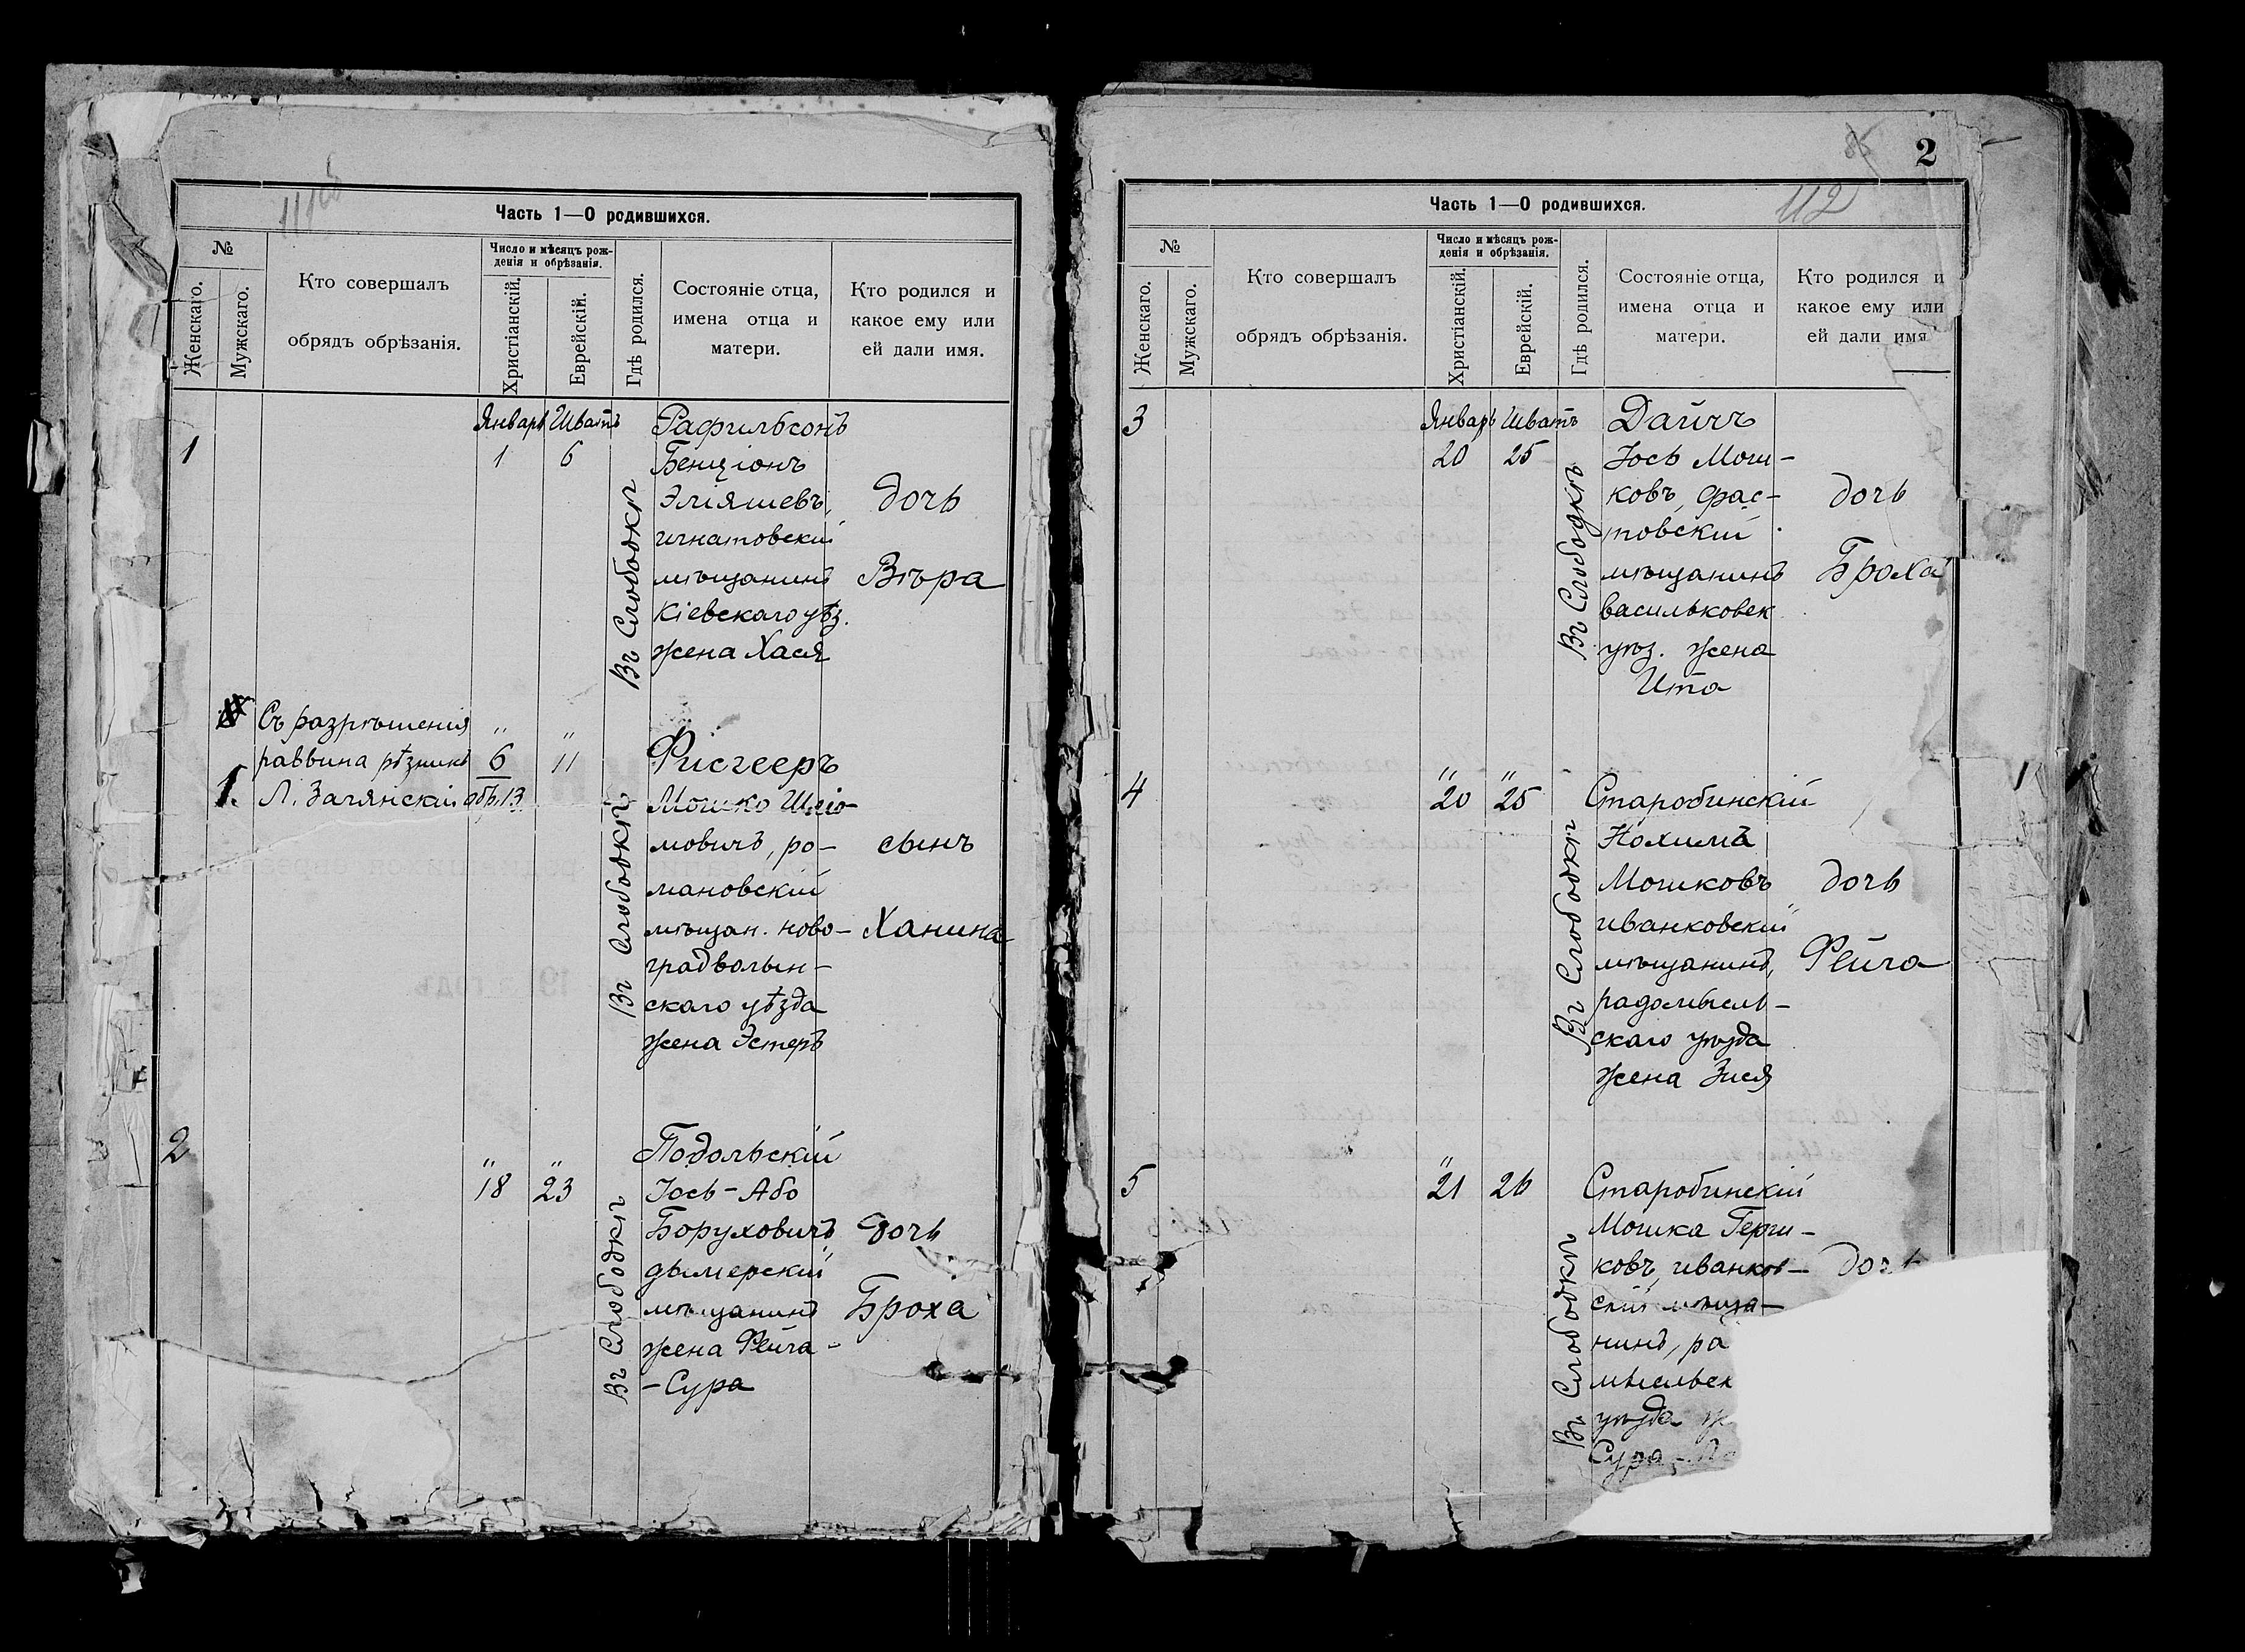 Часть 1—О родившихся.
№
Женскаго.
Мужскаго.
Кто совершалъ
обрядъ обрѣзанія.
Число и мѣсяцъ рож-
денія и обрѣзанія.
Христіанскій.
Еврейскій.
Гдѣ родился.
Состояніе отца,
имена отца и
матери.
Кто родился и
какое ему или
ей дали имя.
1
Январь Шватъ
1 6
Въ Слободкѣ
Рафильсонъ
Бенціонъ
Эліяшевъ,
игнатовскій
мѣщанинъ
Кіевскаго уѣз.
жена Хася
дочь
Вѣра
1.
Съ разрѣшенія
раввина рѣзникъ
Л. Загянскій
" "
6 11
обр. 13
Въ Слободкѣ
Фисгееръ
Мошко Шліо-
мовичъ, ро-
мановскій
мѣщан. ново-
градволын-
скаго уѣзда
жена Эстеръ
сынъ
Ханина
2
" "
18 23
Въ Слободкѣ
Подольскій
Іось-Або
Боруховичъ
дымерскій
мѣщанинъ
жена Фейга-
-Сура
дочь
Броха
2
112
Часть 1—О родившихся.
№
Женскаго.
Мужскаго.
Кто совершалъ
обрядъ обрѣзанія.
Число и мѣсяцъ рож-
денія и обрѣзанія.
Христіанскій.
Еврейскій.
Гдѣ родился.
Состояніе отца,
имена отца и
матери.
Кто родился и
какое ему или
ей дали имя
3
Январь Шватъ
20 25
Въ Слободкѣ
Дайчъ
Іось Мош-
ковъ, фас-
товскій
мѣщанинъ
васильковск
уѣз. жена
Ита
дочь
Броха
4
" "
20 25
Въ Слободкѣ
Старобинскій
Нохимъ
Мошковъ
иванковскій
мѣщанинъ,
радомысль-
скаго уѣзда
жена Зися
дочь
Фейга
5
"
21 26
Въ Слободкѣ
Старобинскій
Мошка Герш-
ковъ, иванков-
скій мѣща-
нинъ, ра
мысльск
уѣзда ж
Сура
дочь